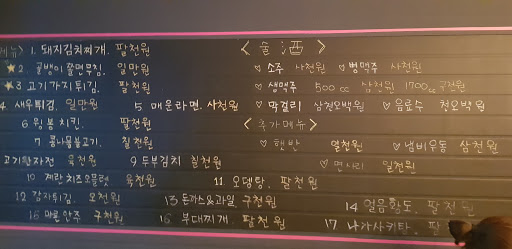 메뉴> 1. 돼지김치찌개. 팔천원
★2. 골뱅이 쫄면무침. 일만원
★3 고기가지튀김. 팔천원
4 새우튀김. 일만원
5 매운라면. 사천원
6 윙봉치킨. 팔천원
7 콩나물불고기. 칠천원
고기완자전 육천원
9 두부김치 칠천원
10 계란치즈오믈렛 육천원
11 오뎅탕. 팔천원
12 감자튀김. 오천원
13 돈까스&과일 구천원
14 얼음황도. 팔천원
15 마른안주 구천원
16 부대찌개. 팔천원
17 나가사키탕. 팔
<술酒>
♡ 소주 사천원 ♡ 병맥주 사천원
♡ 생맥주 500cc 삼천원 1700cc 구천원
♡ 막걸리 삼천오백원 ♡ 음료수 천오백원
<추가메뉴>
♡ 햇반 일천원 ♡ 냄비우동 삼천원
♡ 면사리 일천원